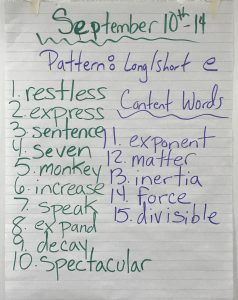 September 10th-14
Pattern: Long/short e
1. restless
2. express
3 sentence
4. seven
5. monkey
6. increase
7. speak
8. expand
9. decay
10. spectacular
Content Words
11. exponent
12. matter
13. inertia
14. force
15. divisible